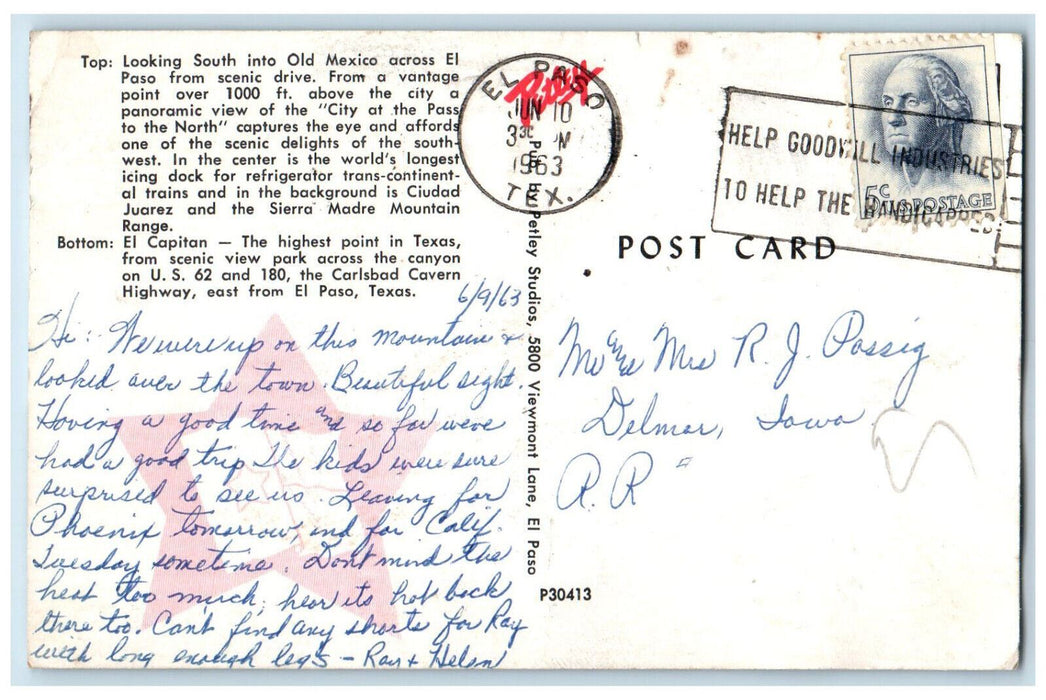 Top: Looking South into Old Mexico across El
Paso from scenic drive. From a vantage
point over 1000 ft. above the city a
panoramic view of the "City at the Pass
to the North" captures the eye and affords
one of the scenic delights of the south-
west. In the center is the world's longest
icing dock for refrigerator trans-continent-
al trains and in the background is Ciudad
Juarez and the Sierra Madre Mountain
Range.
Bottom: El Capitan — The highest point in Texas,
from scenic view park across the canyon
on U. S. 62 and 180, the Carlsbad Cavern
Highway, east from El Paso, Texas.
6/9/63
Hi: We were up on this mountain &
looked over the town. Beautiful sight.
Having a good time and so far weve
had a good trip The kids were sure
surprised to see us. Leaving for
Phoenix tomorrow and for Calif.
Tuesday sometime. Dont mind the
heat too much, hear its hot back
there too. Can't find any shorts for Ray
with long enough legs – Ray & Helen
Petley
Pub. by Petley Studios, 5800 Viewmont Lane, El Paso
EL PASO
JUN 10
3 PM
1963
TEX.
HELP GOODWILL INDUSTRIES
TO HELP THE HANDICAPPED!
5c U.S. POSTAGE
POST CARD
Mr and Mrs R. J. Possig
Delmar, Iowa
R. R.
P30413